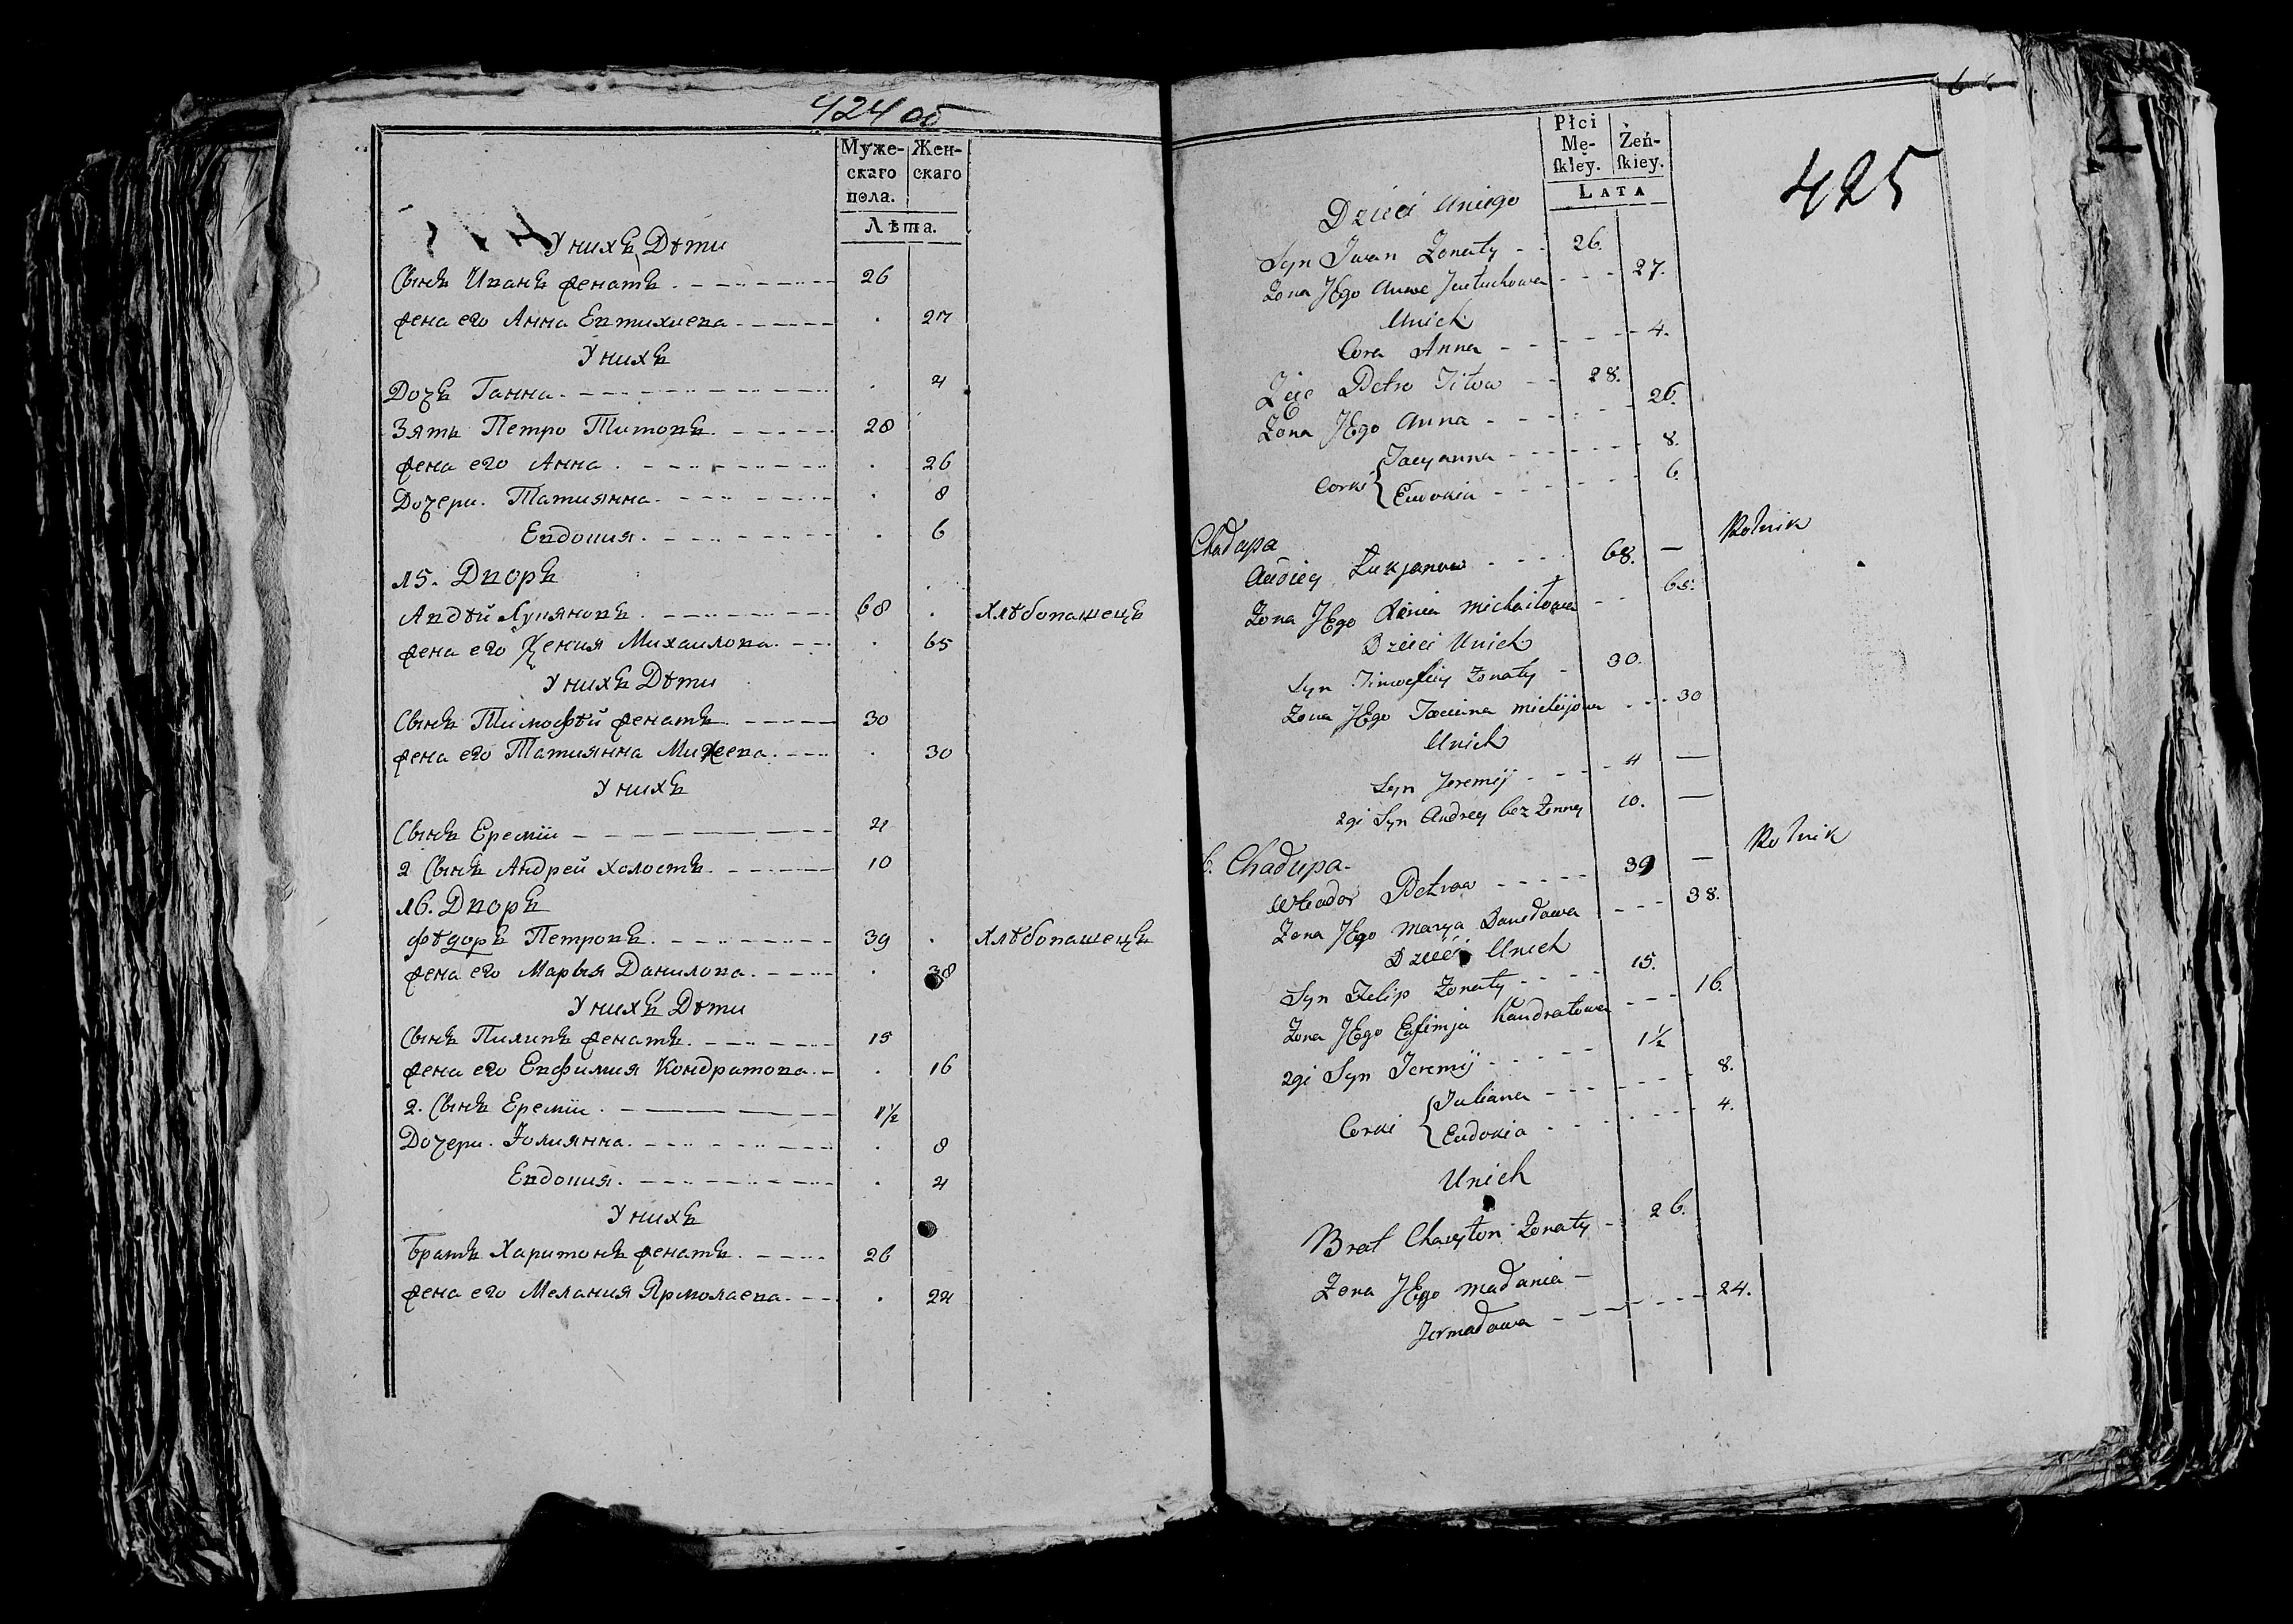 424 об
Муже-
скаго
пола.
Жен-
скаго
Лѣта.
У нихъ Дѣти
Сынъ Иванъ женатъ 26
жена его Анна Евтихиева 27
У нихъ
Дочь Ганна 4
Зять Петро Титовъ 28
жена его Анна 26
Дочери. Татиянна 8
Евдокия 6
15. Дворъ
Авдѣй Лукяновъ 68 Хлѣбопашецъ
жена его Ксения Михаилова 65
У нихъ Дѣти
Сынъ Тимофѣй женатъ 30
жена его Татиянна Михеева 30
У нихъ
Сынъ Еремiи 4
2 Сынъ Андрей холостъ 10
16. Дворъ
Фѣдоръ Петровъ 39 Хлѣбопашецъ
жена его Марья Данилова 38
У нихъ Дѣти
Сынъ Пилипъ женатъ 15
жена его Евфимия Кондратова 16
2. Сынъ Еремiи 1½
Дочери. Юлиянна 8
Евдокия 4
У нихъ
Братъ Харитонъ женатъ 26
жена его Мелания Ярмолаева 24
425
Płci
Mę-
skiey.
Żeń-
skiey.
LATA
Dzieci Uniego
Syn Jwan Żonaty 26.
Żona JEgo Anna Jewtuchowa 27.
Unich
Cora Anna 4.
Zięć Petro Titow 28.
Żona JEgo Anna 26.
Corki { Tacyanna 8.
Eudokia 6.
Chałupa
Audiey Łukjanow 68. — Rolnik
Żona JEgo Xenia Michaiłowa 65.
Dzieci Unich
Syn Timofiey Żonaty 30.
Żona JEgo Taciana Michejowa 30
Unich
Syn Jeremij 4 —
2gi Syn Andrey bez Żenny 10. —
6. Chałupa Rolnik
Chwiador Petrow 39 —
Żona JEgo Marya Daniłowa 38.
Dzieci Unich
Syn Filip Żonaty 15.
Żona JEgo Eufimja Kandratowa 16.
2gi Syn Jeremij 1½
Corki { Juliana 8.
Eudokia 4.
Unich
Brat Charyton Żonaty 26.
Żona JEgo Małania
Jermałowa 24.